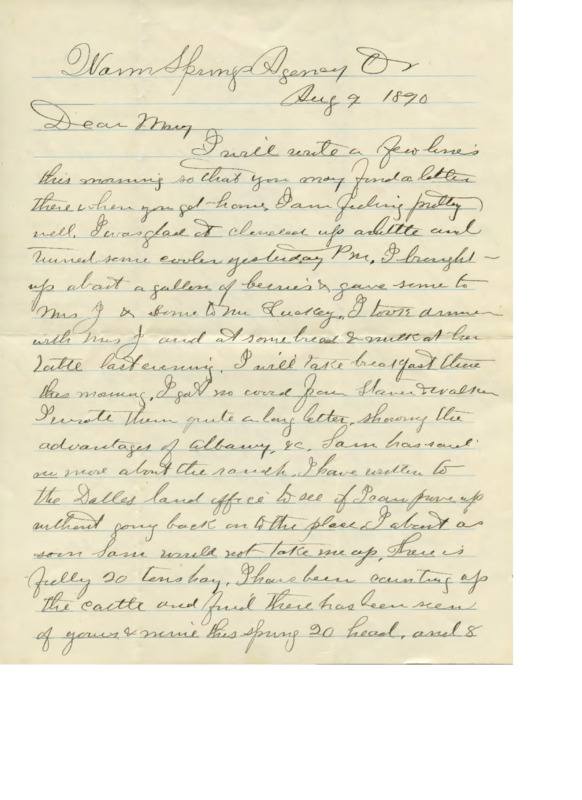 Warm Springs Agency Or
Aug 9 1890
Dear Mary
I will write a few lines
this morning so that you may find a letter
there when you get home. I am feeling pretty
well. I was glad it cleared up a little and
turned some cooler yesterday P.M. I brought
up about a gallon of berries & gave some to
Mrs J & some to Mr Luckey. I took dinner
with Mrs J and at some bread & milk at her
table last evening. I will take breakfast there
this morning. I got no word from Staver & Walker
I wrote them quite a long letter, showing the
advantages of Albany, &c. Sam has said
no more about the ranch. I have written to
the Dalles land office to see if I can prove up
without going back on to the place. I about as
soon Sam would not take me up. There is
fully 20 tons hay. I have been counting up
the cattle and find there has been seen
of yours & mine this spring 20 head, and 8